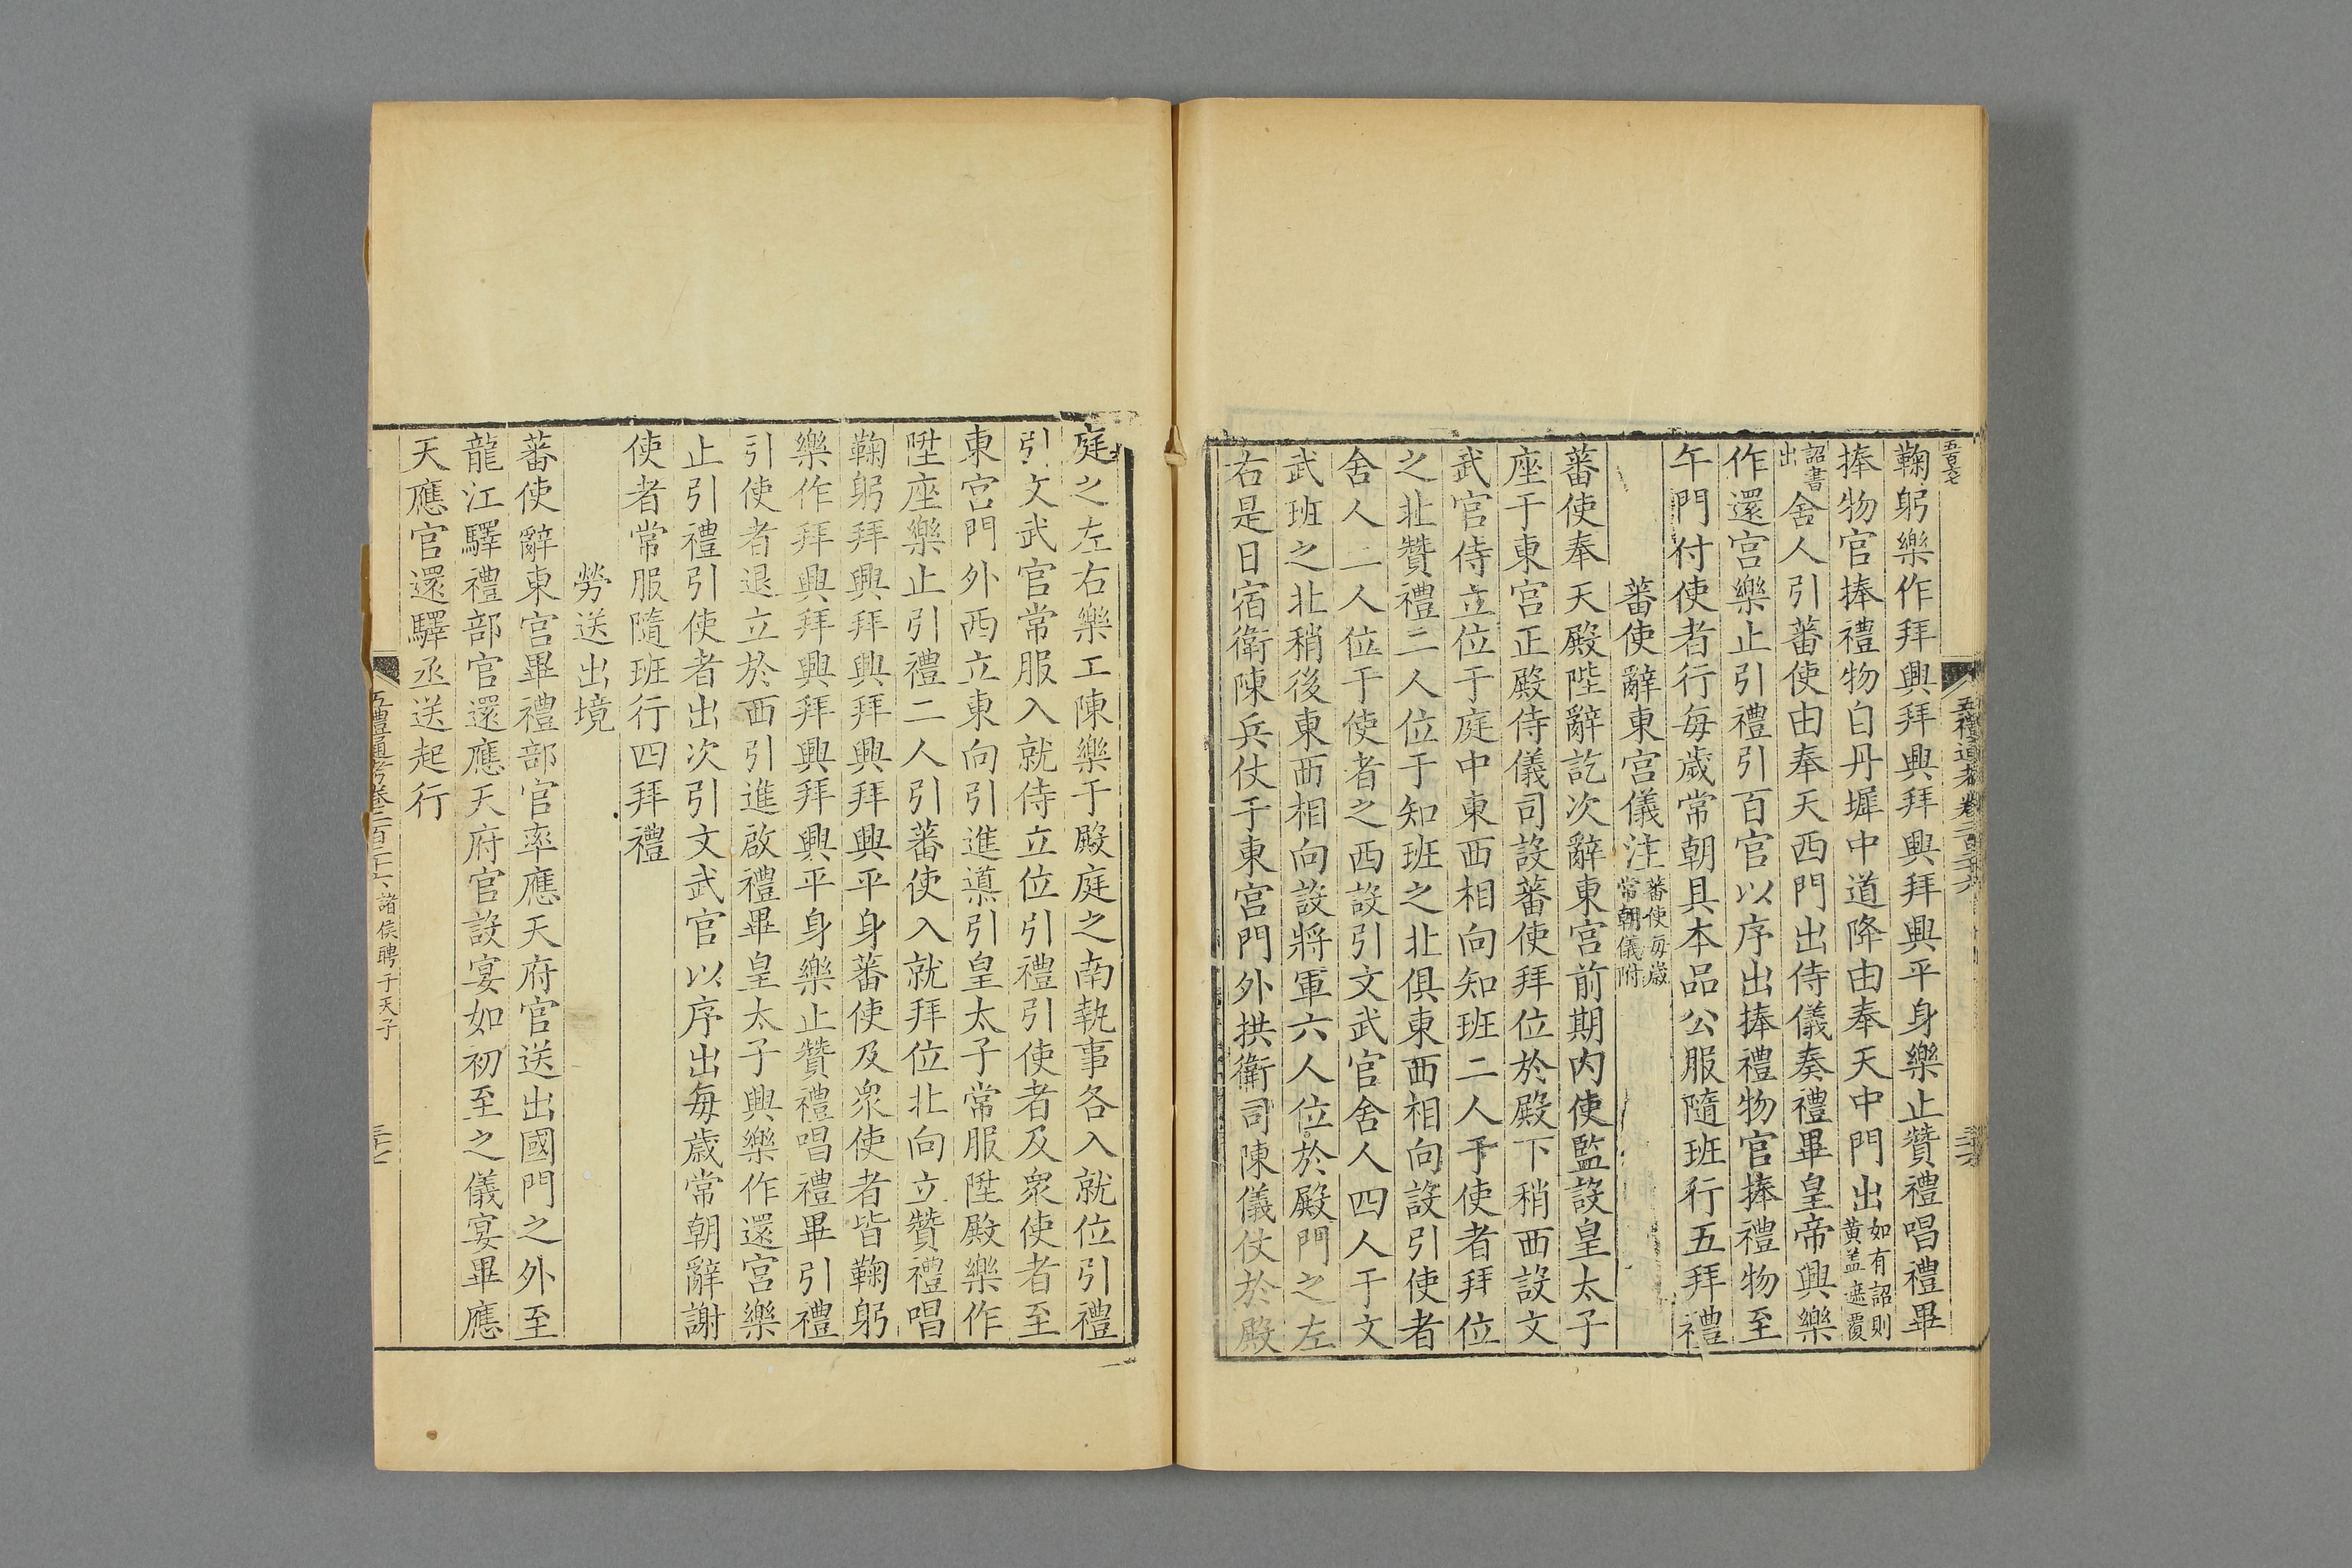 五百七
五禮通考卷二百二十六
鞠躬樂作拜興拜興拜興拜興平身樂止贊禮唱禮畢
捧物官捧禮物白丹墀中道降由奉天中門出如有詔則黄盖遮覆
詔書出舍人引蕃使由奉天西門出侍儀奏禮畢皇帝興樂
作還宮樂止引禮引百官以序出捧禮物官捧禮物至
午門付使者行每歲常朝具本品公服隨班行五拜禮
蕃使辭東宮儀注蕃使每歲常朝儀附
蕃使奉天殿陛辭訖次辭東宮前期内使監設皇太子
座于東宮正殿侍儀司設蕃使拜位於殿下稍西設文
武官侍立位于庭中東西相向知班二人于使者拜位
之北贊禮二人位于知班之北俱東西相向設引使者
舍人二人位于使者之西設引文武官舍人四人于文
武班之北稍後東西相向設將軍六人位於殿門之左
右是日宿衛陳兵仗于東宮門外拱衛司陳儀仗於殿
庭之左右樂工陳樂于殿庭之南執事各入就位引禮
引文武官常服入就侍立位引禮引使者及衆使者至
東宮門外西立東向引進導引皇太子常服陞殿樂作
陞座樂止引禮二人引蕃使入就拜位北向立贊禮唱
鞠躬拜興拜興拜興拜興平身蕃使及衆使者皆鞠躬
樂作拜興拜興拜興拜興平身樂止贊禮唱禮畢引禮
引使者退立於西引進啟禮畢皇太子興樂作還宮樂
止引禮引使者出次引文武官以序出每歲常朝辭謝
使者常服隨班行四拜禮
勞送出境
蕃使辭東宮畢禮部官率應天府官送出國門之外至
龍江驛禮部官還應天府官設宴如初至之儀宴畢應
天應官還驛丞送起行
五禮通考卷二百二十六 諸侯聘于天子